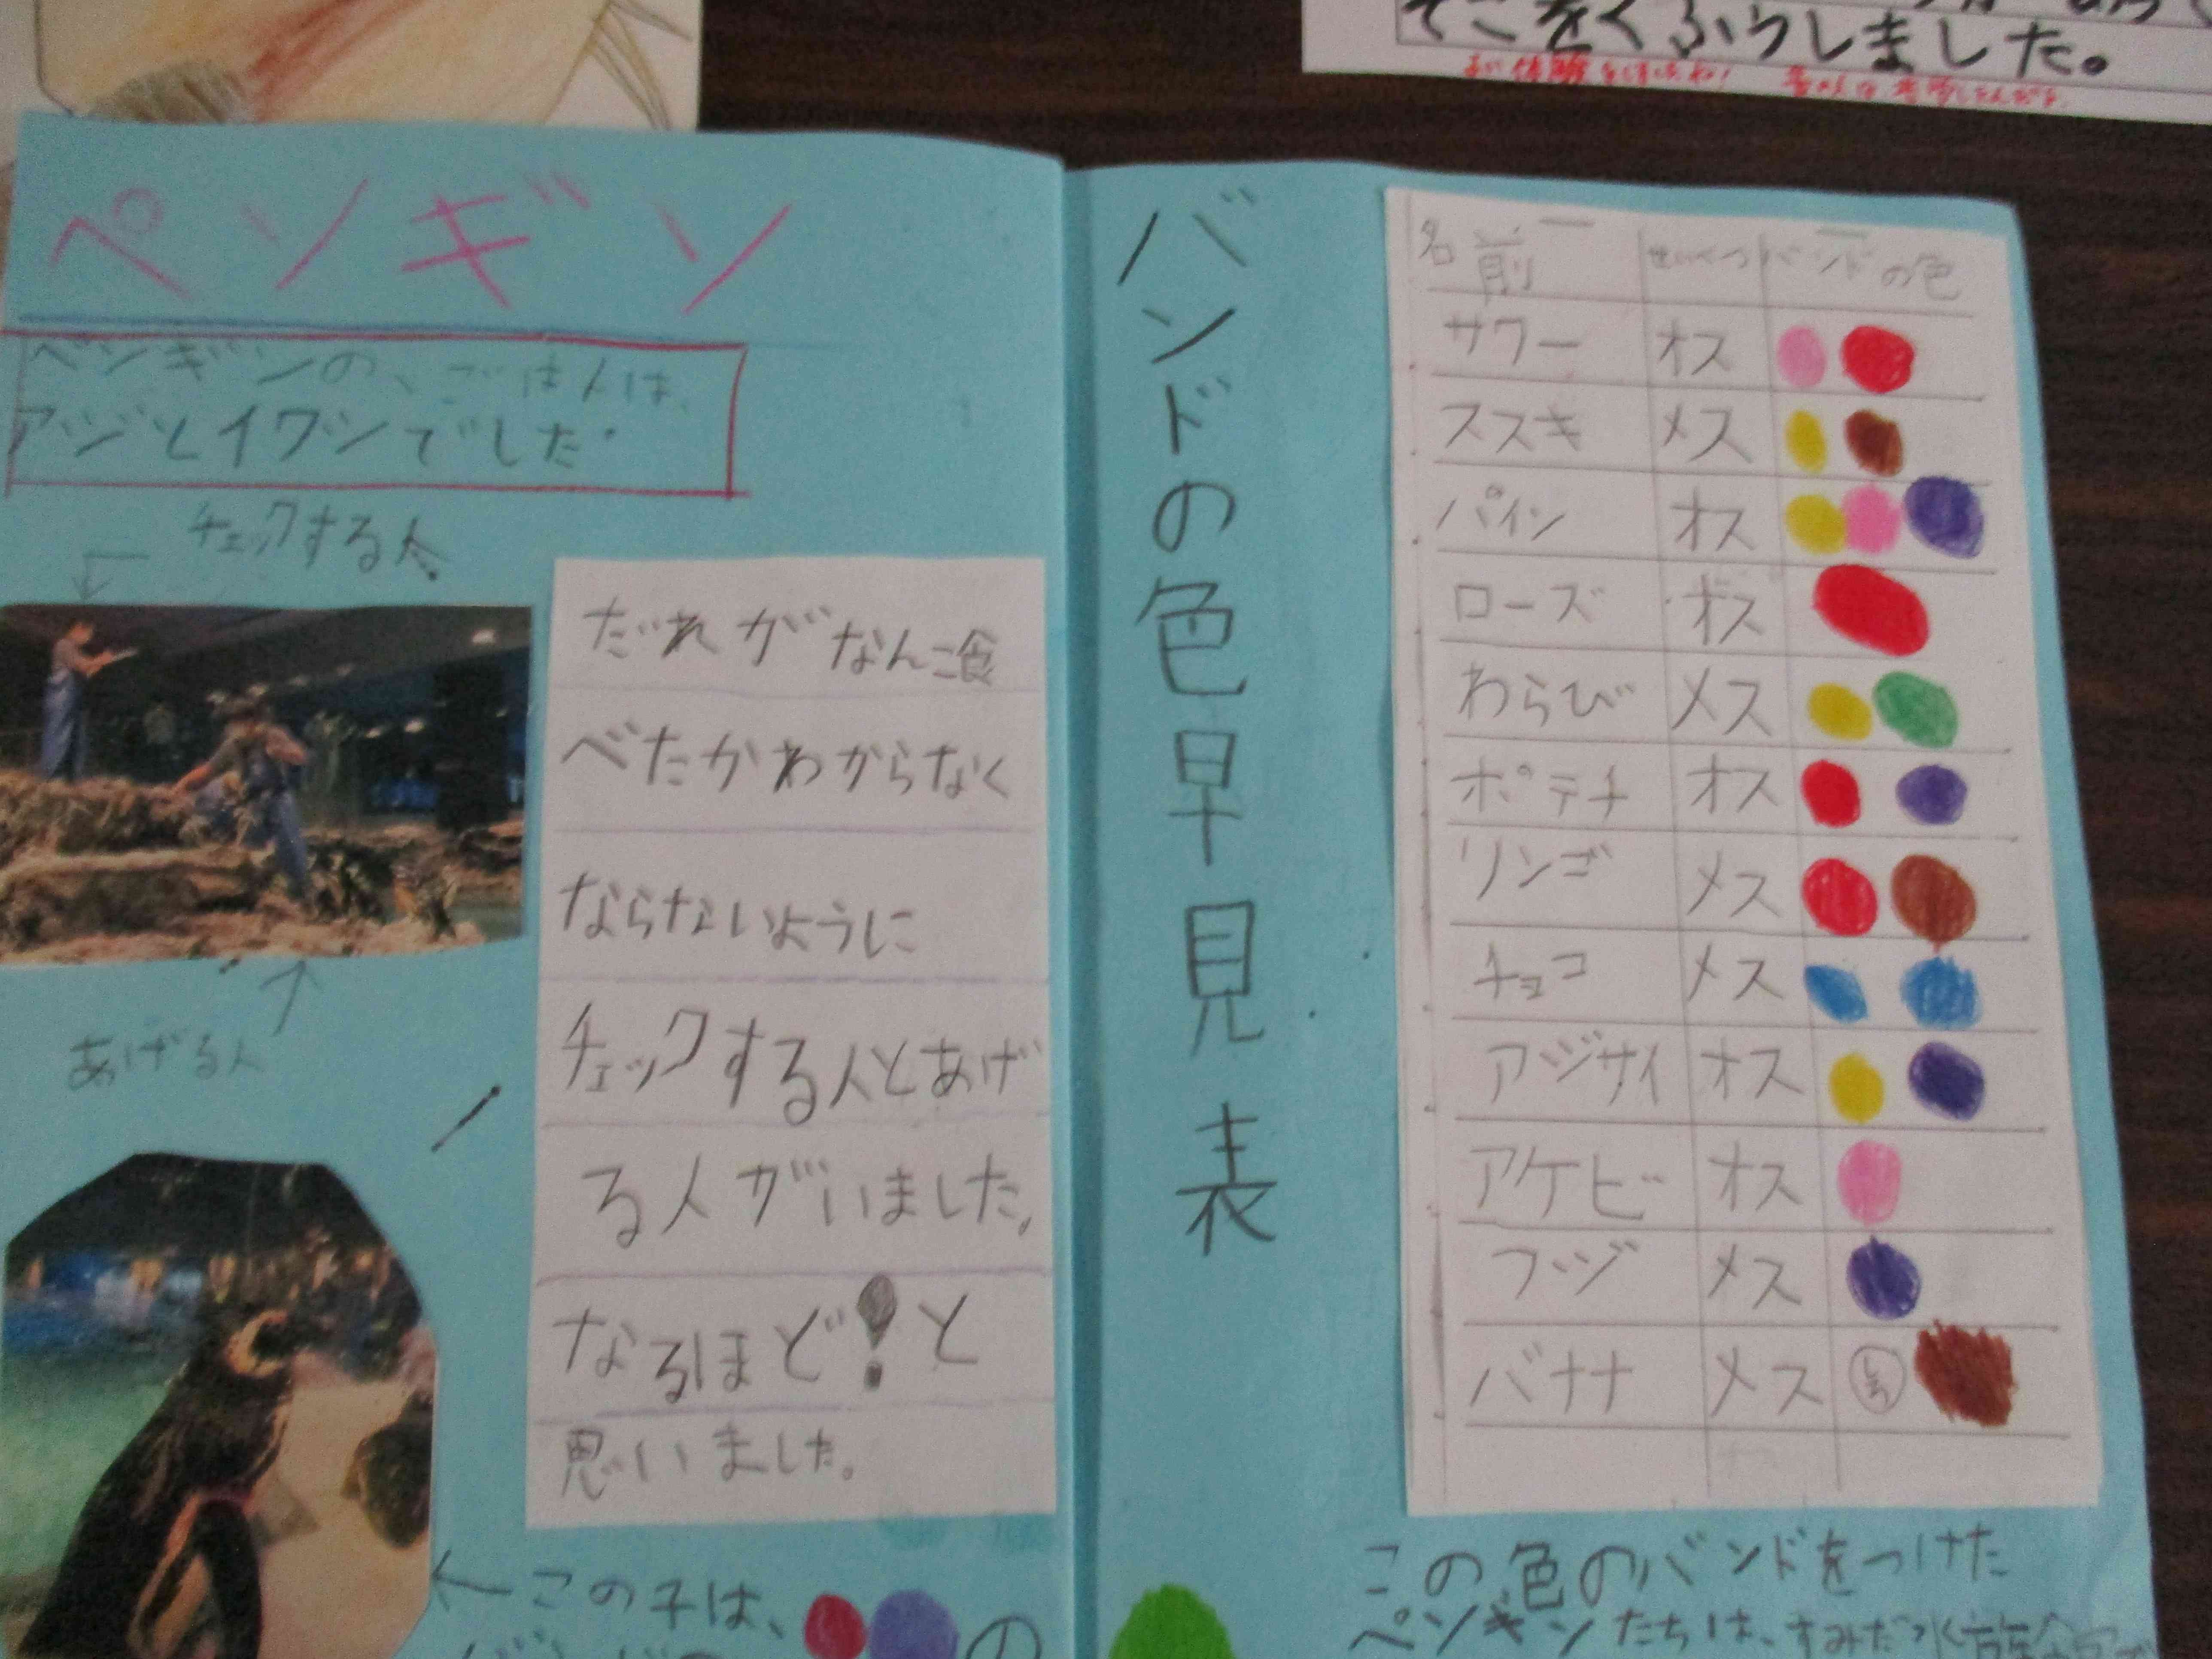 そこをくふうしました。
ペンギン
ペンギンの、ごはんは、
アジとイワシでした。
チェックする人
だれがなんこ食
べたかわからなく
ならないように
チェックする人とあげ
る人がいました。
なるほど!と
思いました。
あげる人
←この子は、
の
バンドの色早見表
名前 せいべつ バンドの色
サワー オス
ススキ メス
パイン オス
ローズ オス
わらび メス
ポテチ オス
リンゴ メス
チョコ メス
アジサイ オス
アケビ オス
フジ メス
バナナ メス
この色のバンドをつけた
ペンギンたちは、すみだ水族館で